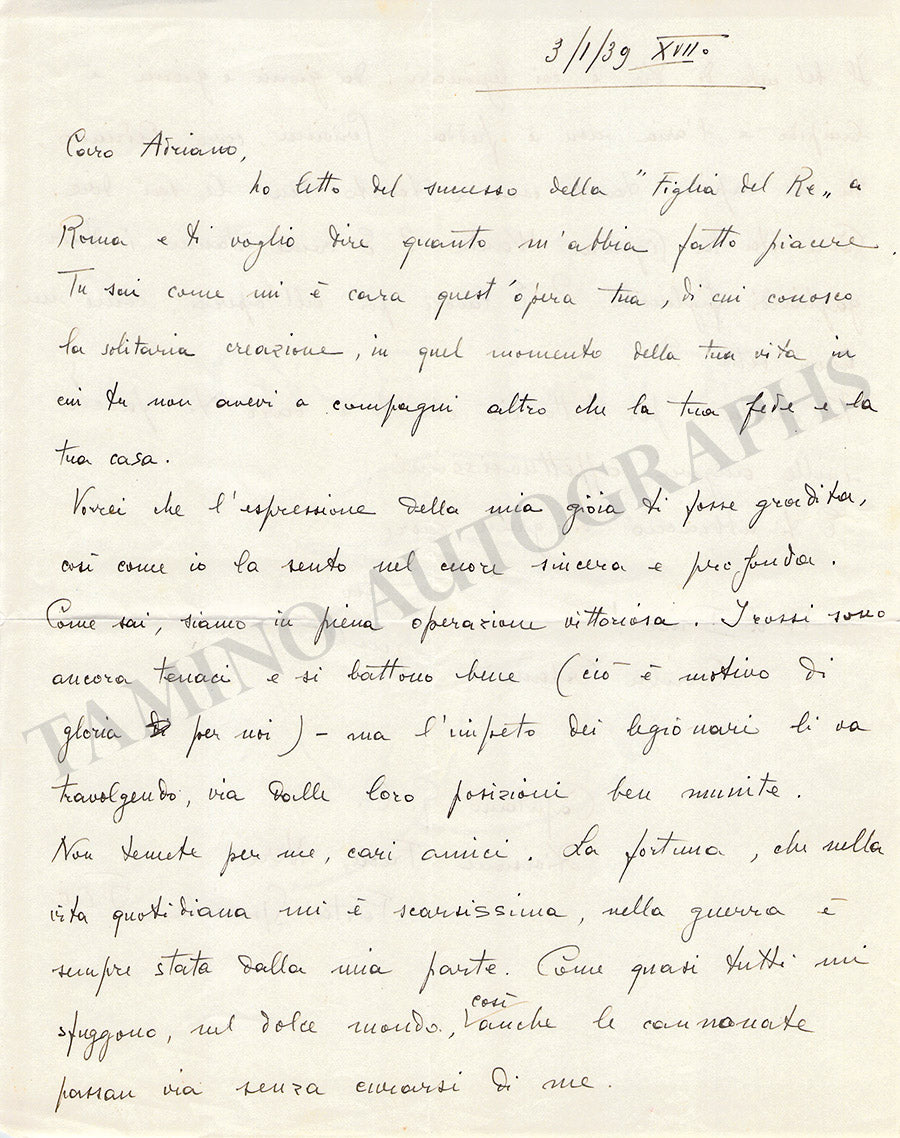 3/1/39 XVII.
Caro Adriano,
ho letto del successo della "Figlia del Re„ a
Roma e ti voglio dire quanto m'abbia fatto piacere.
Tu sai come mi è cara quest'opera tua, di cui conosco
la solitaria creazione, in quel momento della tua vita in
cui tu non avevi a compagni altro che la tua fede e la
tua casa.
Vorrei che l'espressione della mia gioia ti fosse gradita,
così come io la sento nel cuore sincera e profonda.
Come sai, siamo in piena operazione vittoriosa. I rossi sono
ancora tenaci e si battono bene (ciò è motivo di
gloria per noi) - ma l'impeto dei legionari li va
travolgendo, via dalle loro posizioni ben munite.
Non temete per me, cari amici. La fortuna, che nella
vita quotidiana mi è scarsissima, nella guerra è
sempre stata dalla mia parte. Come quasi tutti mi
sfuggono, nel dolce mondo, così anche le cannonate
passan via senza curarsi di me.
TAMINO AUTOGRAPHS